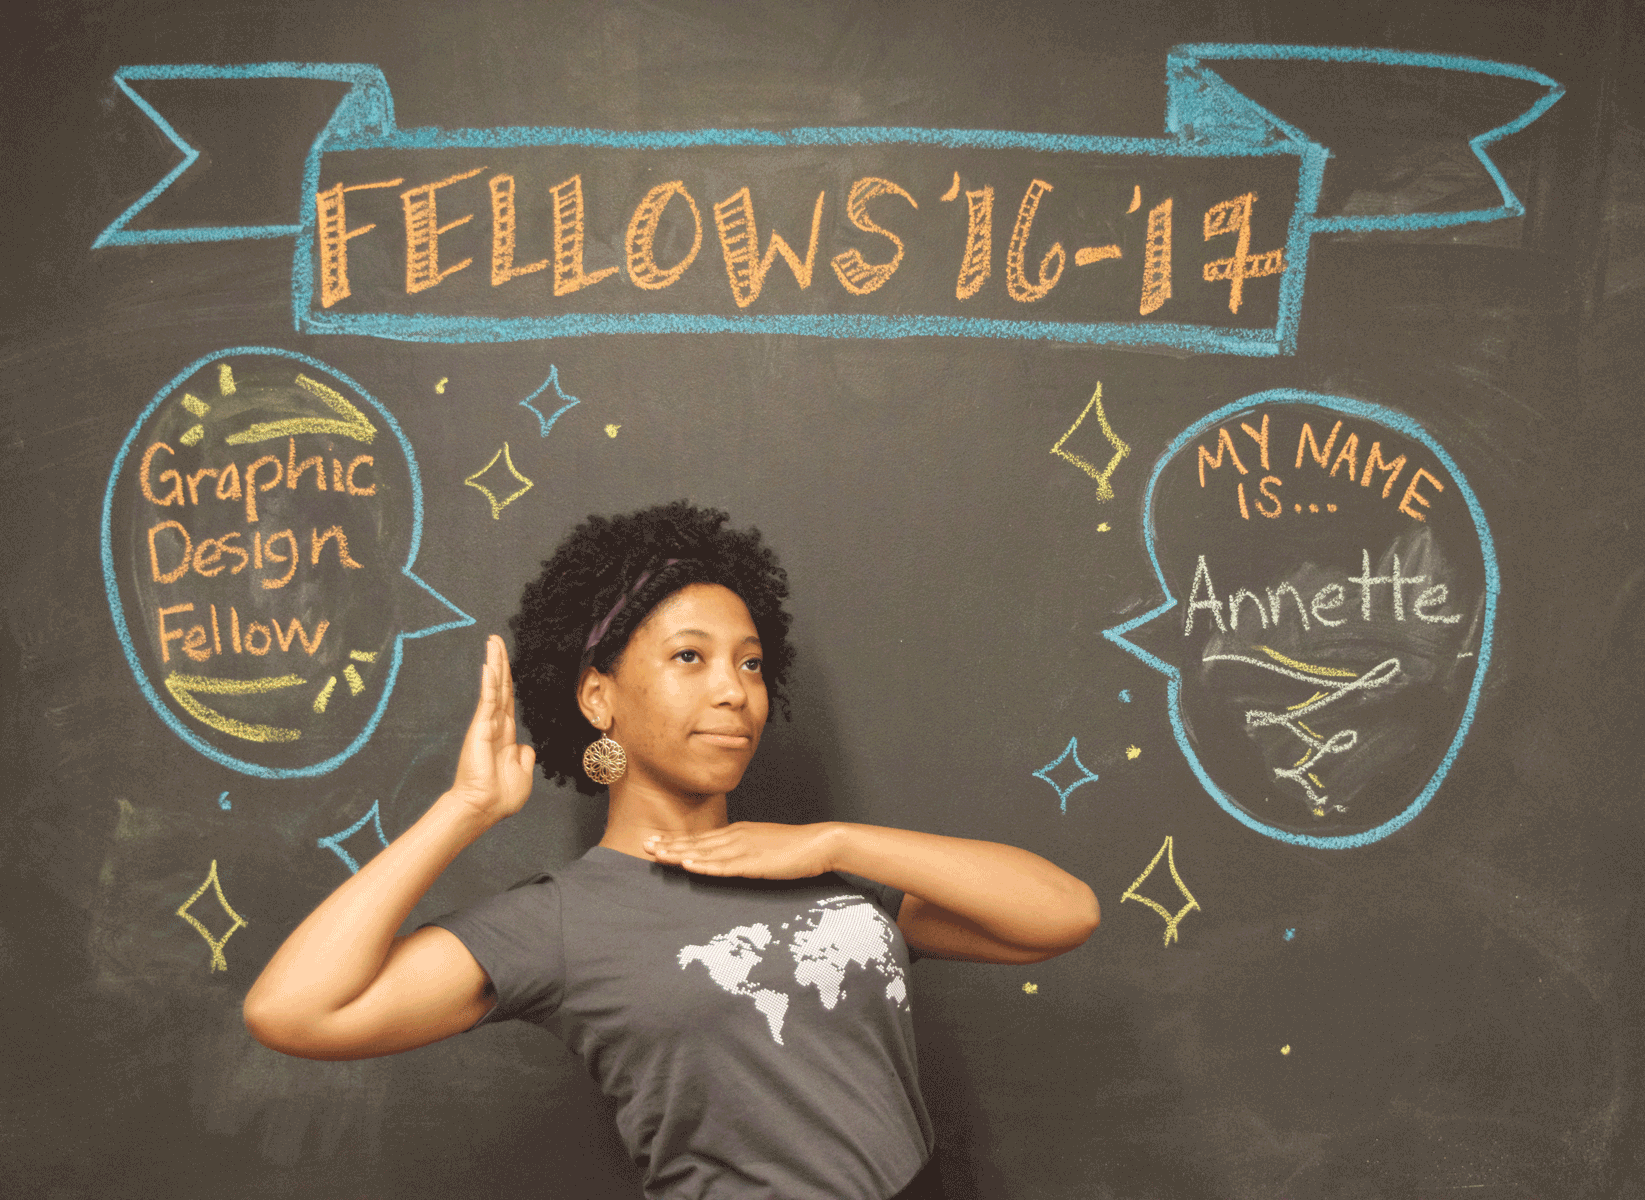 FELLOWS '16-'17
Graphic
Design
Fellow
MY NAME
IS...
Annette